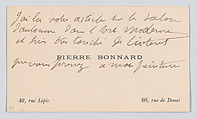 J'ai lu votre article sur le Salon
d'automne dans l'Art Moderne
et suis très touché de l'intérêt
PIERRE BONNARD
que vous prenez à ma peinture
49, rue Lepic
60, rue de Douai